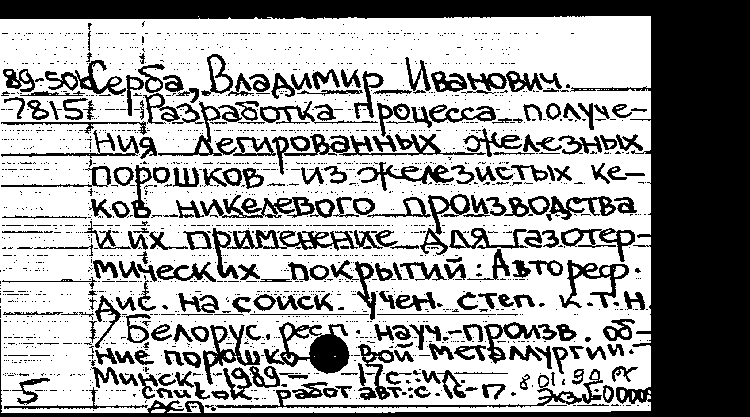 89-50к Серба, Владимир Иванович.
7815 Разработка процесса получе-
ния легированных железных
порошков из железистых ке-
ков никелевого производства
и их применение для газотер-
мических покрытий: Автореф.
дис. на соиск. учен. степ. к.т.н.
/ Белорус. респ. науч.-произв. об-
ние порошко- вой металлургии.-
Минск, 1989.- 17с.:ил. 8.01.90
Список работ авт.:с.16-17.
5 ДСП.